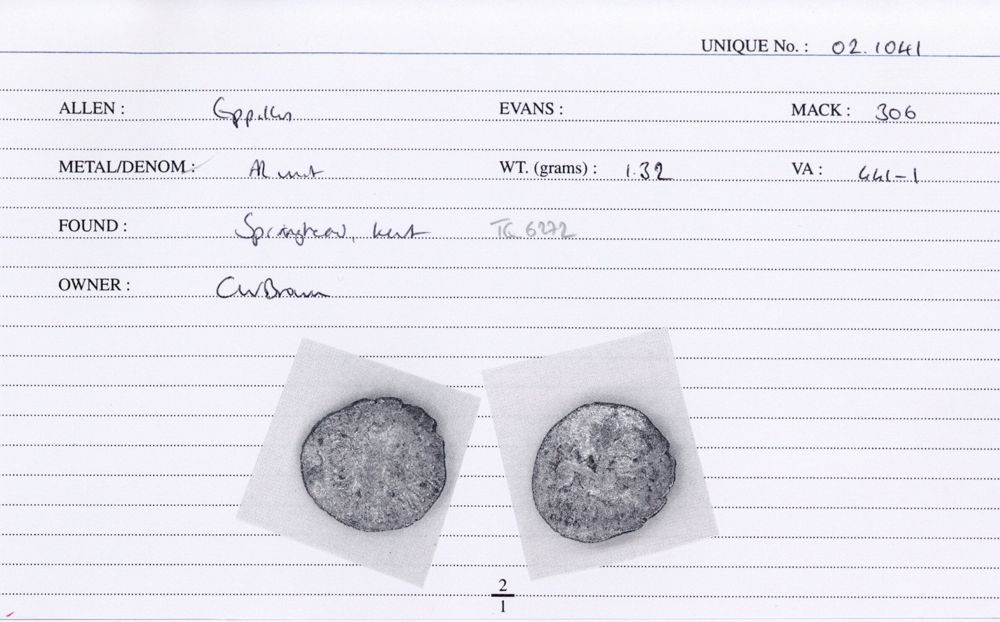 UNIQUE No. : 02.1041
ALLEN : Eppillus EVANS : MACK : 306
METAL/DENOM : AR unit WT. (grams) : 1.32 VA : 441-1
FOUND : Springhead, Kent TQ 6272
OWNER : CW Brown
2
1